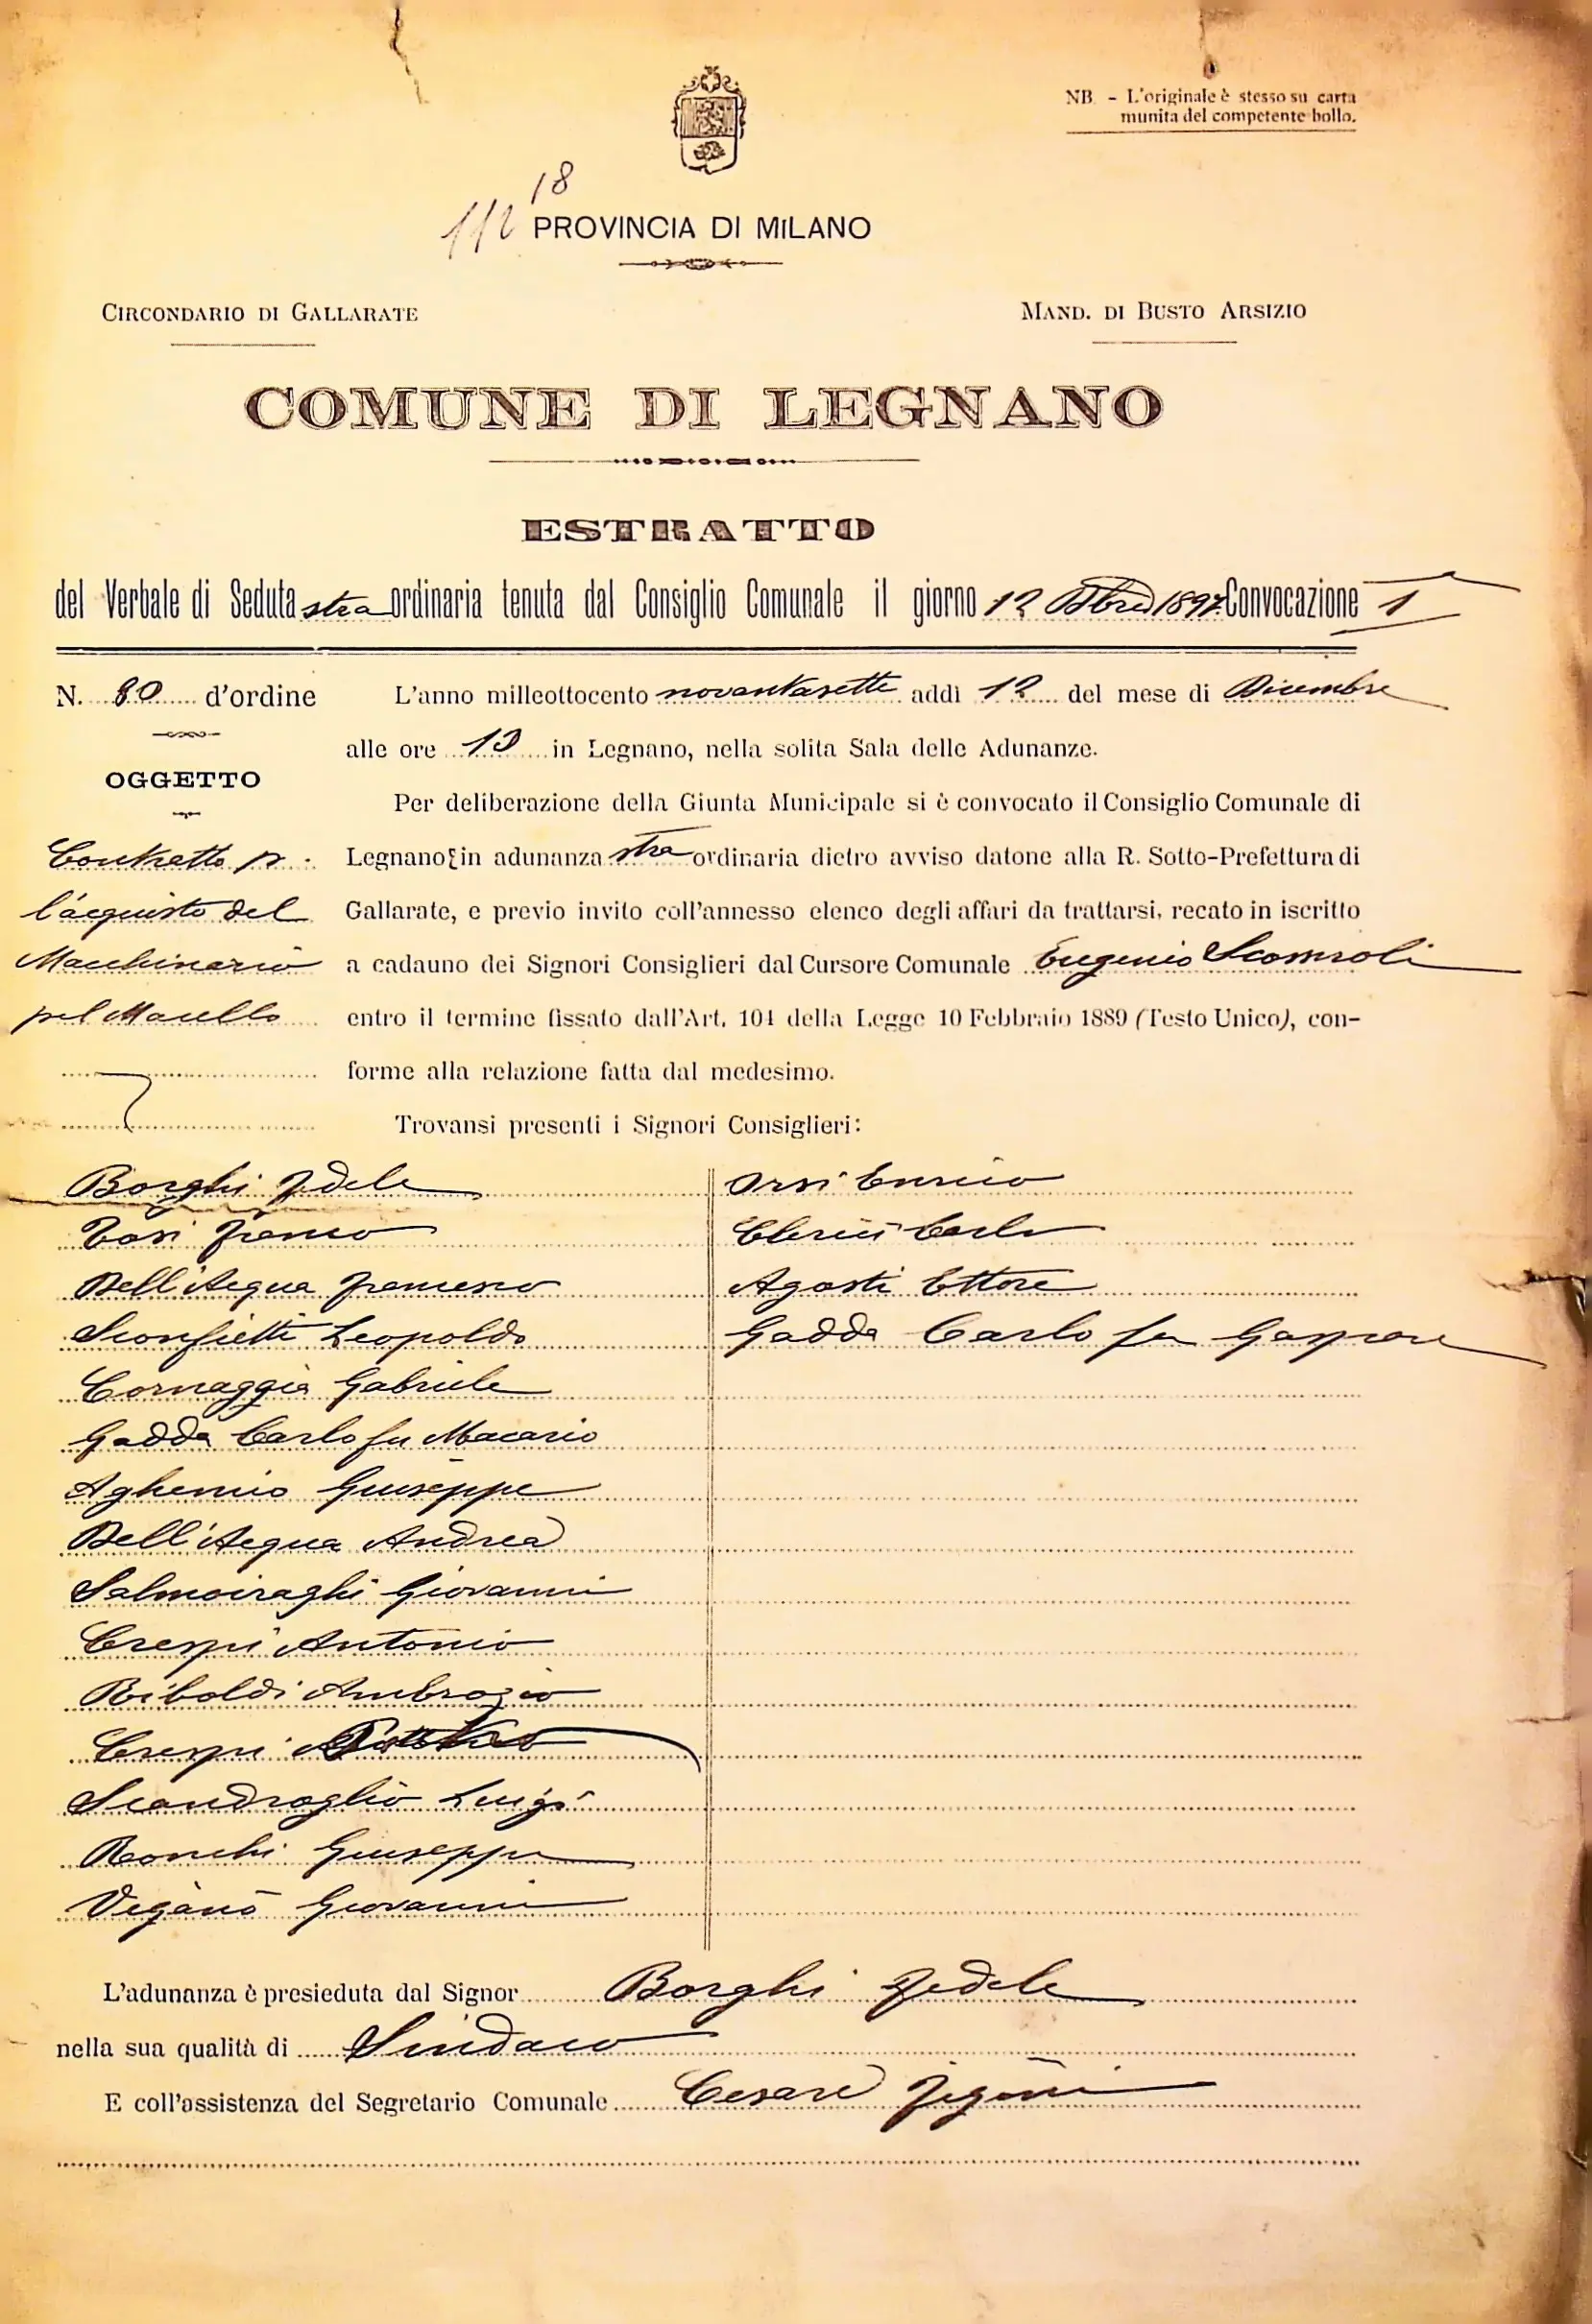 NB. - L'originale è stesso su carta
munita del competente bollo.
18
112
PROVINCIA DI MILANO
CIRCONDARIO DI GALLARATE
MAND. DI BUSTO ARSIZIO
COMUNE DI LEGNANO
ESTRATTO
del Verbale di Seduta straordinaria tenuta dal Consiglio Comunale il giorno 12 Xbre 1897 Convocazione 1ª
N. 80 d'ordine
OGGETTO
Contratto p.
l'acquisto del
Macchinario
pel Macello
L'anno milleottocento novantasette addì 12 del mese di Dicembre
alle ore 13 in Legnano, nella solita Sala delle Adunanze.
Per deliberazione della Giunta Municipale si è convocato il Consiglio Comunale di
Legnano in adunanza straordinaria dietro avviso datone alla R. Sotto-Prefettura di
Gallarate, e previo invito coll'annesso elenco degli affari da trattarsi, recato in iscritto
a cadauno dei Signori Consiglieri dal Cursore Comunale Eugenio
entro il termine fissato dall'Art. 104 della Legge 10 Febbraio 1889 (Testo Unico), con-
forme alla relazione fatta dal medesimo.
Trovansi presenti i Signori Consiglieri:
Borghi Fedele
Tosi Franco
Dell'Acqua Francesco
Sconfietti Leopoldo
Cornaggia Gabriele
Gadda Carlo fu Macario
Aghemio Giuseppe
Dell'Acqua Andrea
Salmoiraghi Giovanni
Crespi Antonio
Riboldi Ambrogio
Crespi
Scandroglio Luigi
Ronchi Giuseppe
Veganò Giovanni
Orsi Enrico
Clerici Carlo
Agosti Ettore
Gadda Carlo fu Gaspare
L'adunanza è presieduta dal Signor Borghi Fedele
nella sua qualità di Sindaco
E coll'assistenza del Segretario Comunale Cesare